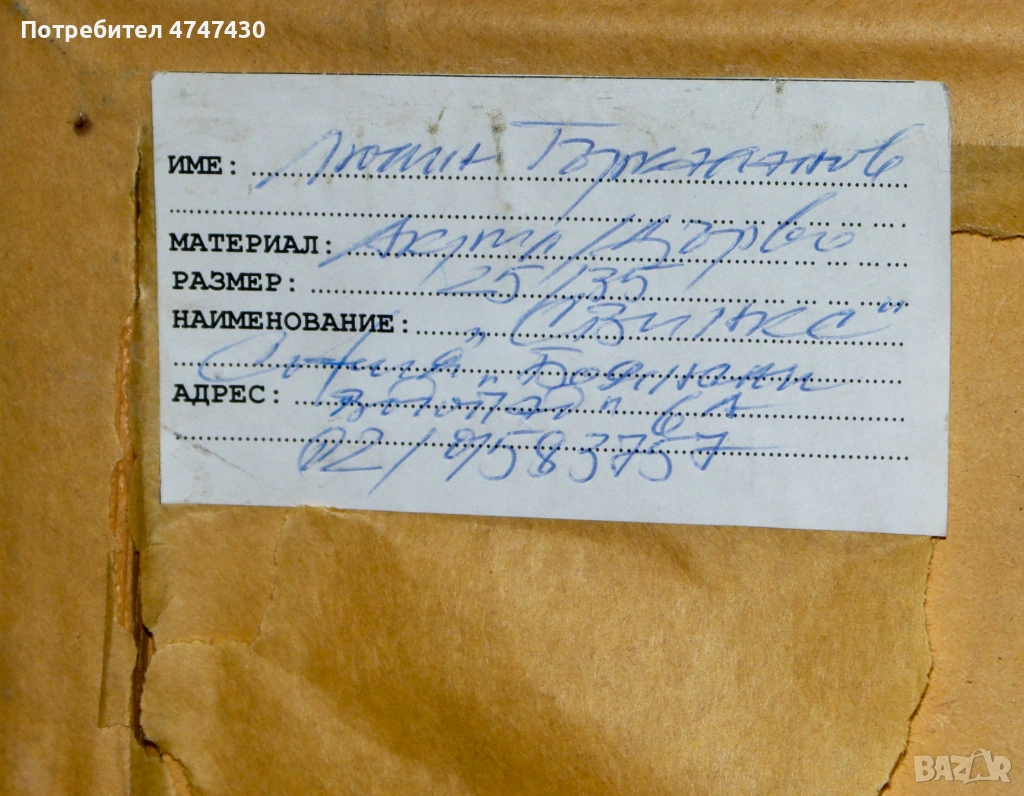 Потребител 4747430
ИМЕ: Люмин Гъркаланов
МАТЕРИАЛ: Акрил / Дърво
РАЗМЕР: 25/35
НАИМЕНОВАНИЕ: „Свинка"
София, Бояна
АДРЕС: 6А
02/9583757
BAZAR